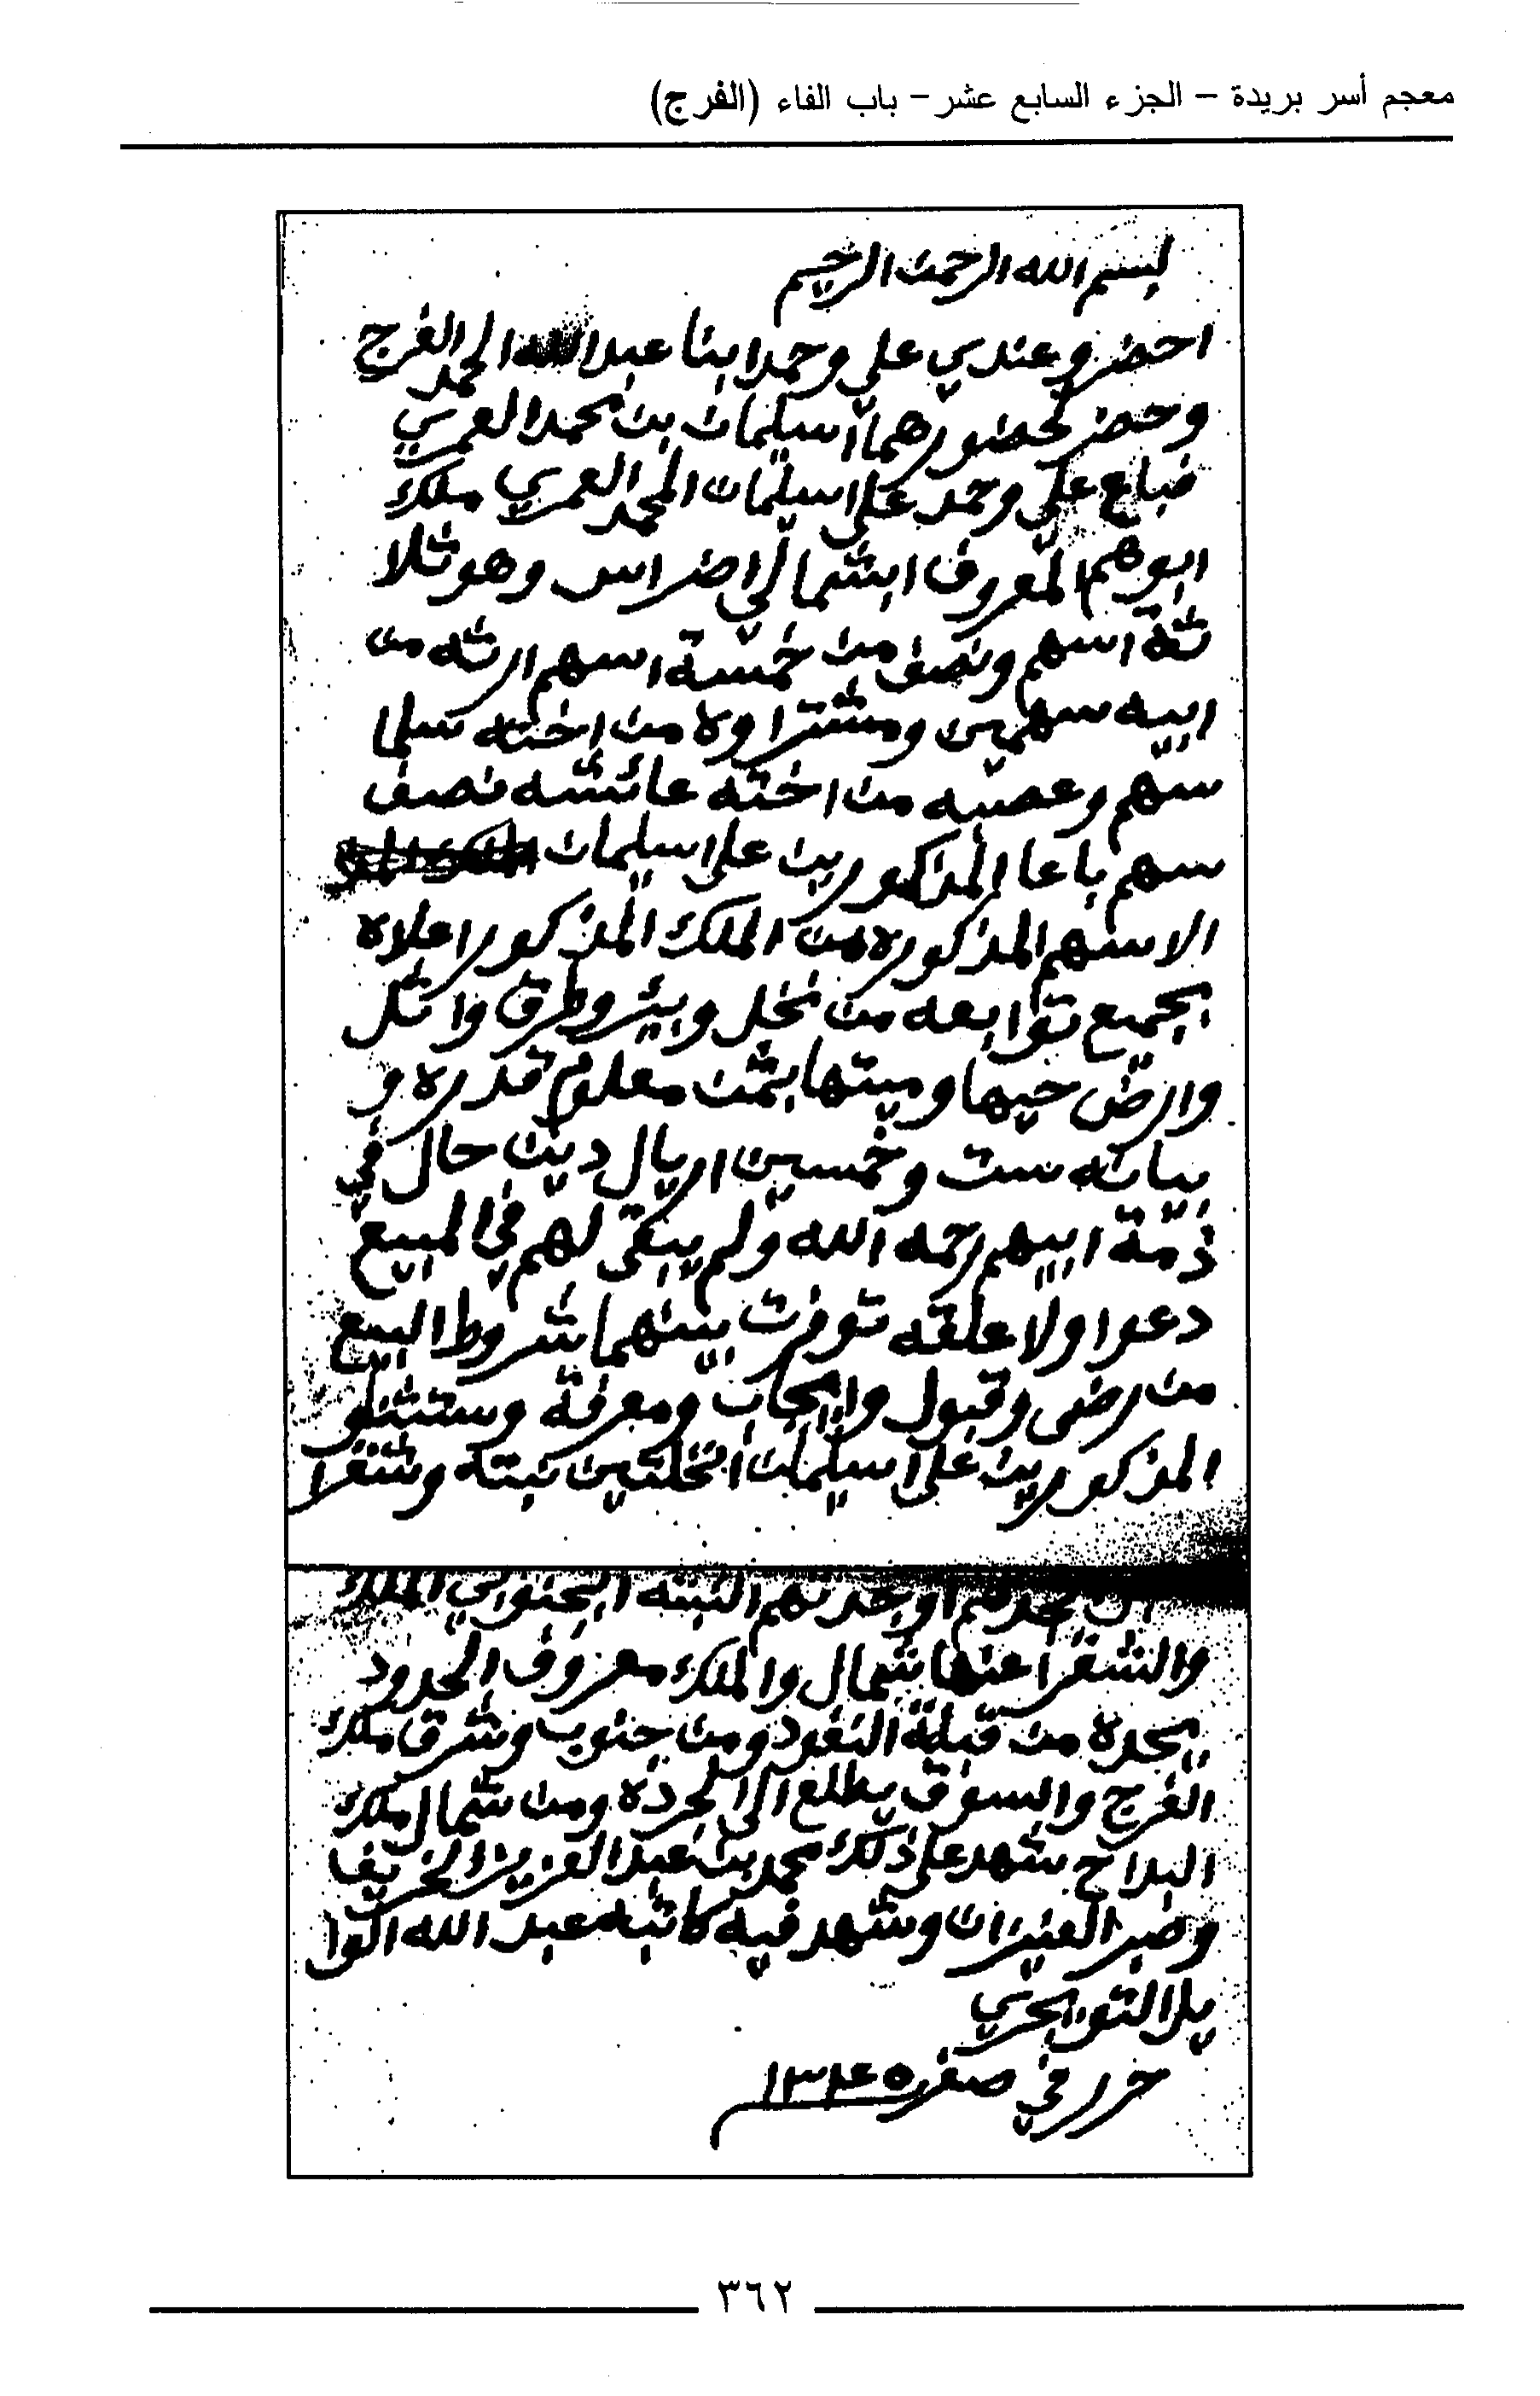 معجم أسر بريدة – الجزء السابع عشر – باب الفاء (الفرج)
بسم الله الرحمن الرحيم
احضرو عندي علي وحمد ابنا عبدالله المحمد الفرج
وحضر لحضورهما اسليمان بن محمد العمري
فباع علي وحمد على اسليمان المحمد العمري ملك
ابوهم المعروف ابشمالي اضراس وهو ثلا
ثة اسهم ونصف من خمسة اسهم ارثه من
ابيه سهمين ومشتراوه من اخته سلما
سهم وعصبه من اخته عائشه نصف
سهم باعا المذكورين على اسليمان
الاسهم المذكوره من الملك المذكور اعلاه
بجميع توابعه من نخل وبئر وطرق واثل
وارض حيها وميتها بثمن معلوم قدره و
بيانه ست وخمسين اريال دين حال في
ذمة ابيهم رحمه الله ولم يبقى لهم في المبيع
دعوا ولا علقه توفرت بينهما شروط البيع
من رضى وقبول وايجاب ومعرفة وستثنو
المذكورين على اسليمان انخلتين نبتة وشقرا
اوجدتهم النبته ابجنوبي الملك
والشقرا عنها شمال والملك معروف الحدود
يحده من قبلة النفود ومن جنوب وشرق ملك
الفرج والسوق يطلع الى الجرده ومن شمال ملك
البداح شهد على ذلك محمد بن عبدالعزيز الخريف
وخبر العنيزان وشهد فيه كاتبه عبد الله الوا
يلا التويجري
حرر في صفر ١٣٤٥
٣٦٢